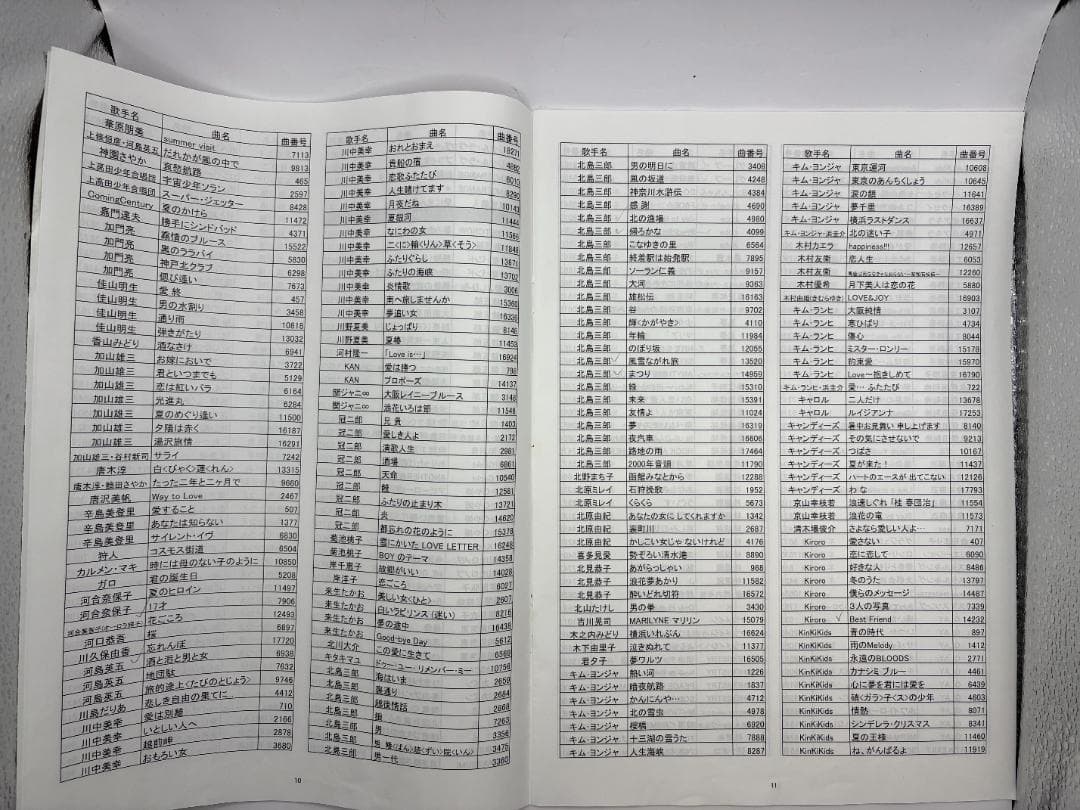 歌手名 曲名 曲番号
華原朋美 summer visit 7113
上條恒彦・河島英五 だれかが風の中で 9813
神園さやか 哀愁航路 465
上高田少年合唱団 宇宙少年ソラン 2597
上高田少年合唱団 スーパー・ジェッター 8428
ComingCentury 夏のかけら 11472
嘉門達夫 勝手にシンドバッド 4371
加門亮 慕情のブルース 15522
加門亮 男のララバイ 5830
加門亮 神戸北クラブ 6298
加門亮 偲び逢い 7673
佳山明生 愛終 457
佳山明生 男の水割り 3458
佳山明生 通り雨 10618
佳山明生 弾きがたり 13032
香山みどり 酒なさけ 6941
加山雄三 お嫁においで 3722
加山雄三 君といつまでも 5129
加山雄三 恋は紅いバラ 6164
加山雄三 光進丸 6284
加山雄三 夏のめぐり逢い 11500
加山雄三 夕陽は赤く 16187
加山雄三 湯沢旅情 16291
加山雄三・谷村新司 サライ 7242
唐木淳 白<びゃく>蓮<れん> 13315
唐木淳・勝田さやか たった二年と二ヶ月で 9660
唐沢美帆 Way to Love 2467
辛島美登里 愛すること 507
辛島美登里 あなたは知らない 1377
辛島美登里 サイレント・イヴ 6830
狩人 コスモス街道 6504
カルメン・マキ 時には母のない子のように 10850
ガロ 君の誕生日 5208
河合奈保子 夏のヒロイン 11497
河合奈保子 17才 7906
花ごころ 12493
河口恭吾 桜 6897
川久保由香 忘れんぼ 17720
河島英五 酒と泪と男と女 6938
河島英五 地団駄 7632
河島英五 旅的途上<たびのとじょう> 9746
川島だりあ 悲しき自由の果てに… 4412
川中美幸 愛は別離 710
川中美幸 いとしい人へ 2166
川中美幸 越前岬 2878
川中美幸 おもろい女 3680
歌手名 曲名 曲番号
川中美幸 おれとおまえ 18271
川中美幸 貴船の宿 4882
川中美幸 恋歌ふたたび 6010
川中美幸 人生賭けてます 8290
川中美幸 月夜だね 10143
川中美幸 夏銀河 11444
川中美幸 なにわの女 11585
川中美幸 二<に>輪<りん>草<そう> 11848
川中美幸 ふたりぐらし 13671
川中美幸 ふたりの海峡 13702
川中美幸 炎情歌 3006
川中美幸 南へ旅しませんか 15360
川中美幸 夢追い女 16336
川野夏美 じょっぱり 8146
川野夏美 夏椿 11459
河村隆一 「Love is…」 16924
KAN 愛は勝つ 798
KAN プロポーズ 14137
関ジャニ∞ 大阪レイニーブルース 3148
関ジャニ∞ 浪花いろは節 11548
冠二郎 兄貴 1403
冠二郎 愛しき人よ 2172
冠二郎 演歌人生 2981
冠二郎 酒場 6861
冠二郎 天命 10540
冠二郎 12581
冠二郎 ふたりの止まり木 13721
冠二郎 炎 14620
菊池桃子 都忘れの花のように 15378
菊池桃子 雪にかいた LOVE LETTER 16248
菊池桃子 BOYのテーマ 14358
岸千恵子 故郷がいい 14028
岸洋子 恋ごころ 6027
来生たかお 美しい女<ひと> 2607
来生たかお 白いラビリンス(迷い) 8216
来生たかお 夢の途中 16438
来生たかお Good-bye Day 5612
北川大介 この愛に生きて 6560
キタキマユ ドゥー・ユー・リメンバー・ミー 10756
北島三郎 海はいま 2659
北島三郎 裏通り 2684
北島三郎 越後情話 2868
北島三郎 7263
北島三郎 3356
北島三郎 3475
北島三郎 男一代 3360
10
歌手名 曲名 曲番号
北島三郎 男の明日に 3406
北島三郎 風の坂道 4248
北島三郎 神奈川水滸伝 4384
北島三郎 感謝 4690
北島三郎 北の漁場 4980
北島三郎 帰ろかな 4099
北島三郎 こなゆきの里 6564
北島三郎 終着駅は始発駅 7895
北島三郎 ソーラン仁義 9157
北島三郎 大河 9363
北島三郎 雄松伝 16163
北島三郎 谷 9702
北島三郎 輝<かがやき> 4110
北島三郎 年輪 11984
北島三郎 のぼり坂 12065
北島三郎 風雪ながれ旅 13520
北島三郎 まつり 14969
北島三郎 15310
北島三郎 未来 15391
北島三郎 友情よ 11024
北島三郎 夢 16319
北島三郎 夜汽車 16606
北島三郎 路地の雨 17464
北島三郎 2000年音頭 11790
北野まち子 函館みなとから 12288
北原ミレイ 石狩挽歌 1952
北原ミレイ くらくら 5673
北原由紀 あなたの女にしてくれますか 1342
北原由紀 裏町川 2687
北原由紀 かしこい女じゃないけれど 4176
喜多見愛 勢ぞろい清水港 8890
北見恭子 あがらっしゃい 968
北見恭子 浪花夢あかり 11582
北見恭子 酔いどれ切符 16572
北山たけし 男の拳 3430
吉川晃司 MARILYNE マリリン 15079
木之内みどり 横浜いれぶん 16624
木下由里子 泣きぬれて 11377
君夕子 夢ワルツ 16505
キム・ヨンジャ 熱い河 1226
キム・ヨンジャ 暗夜航路 1837
キム・ヨンジャ かんにんや… 4712
キム・ヨンジャ 北の雪虫 4978
キム・ヨンジャ 桜橋 6920
キム・ヨンジャ 十三湖の雪うた 7888
キム・ヨンジャ 人生海峡 8287
歌手名 曲名 曲番号
キム・ヨンジャ 東京運河 10608
キム・ヨンジャ 東京のあんちくしょう 10645
キム・ヨンジャ 涙の顔 11641
キム・ヨンジャ 夢千里 16389
キム・ヨンジャ 横浜ラストダンス 16637
キム・ヨンジャ・浜圭介 北の迷い子 4971
木村カエラ happiness!!! 12657
木村友衛 恋人生 6053
木村友衛 12260
木村優希 月下美人は恋の花 5880
木村由姫(きむらゆき) LOVE&JOY 16903
キム・ランヒ 大阪純情 3107
キム・ランヒ 寒ひばり 4734
キム・ランヒ 傷心 8044
キム・ランヒ ミスター・ロンリー 15178
キム・ランヒ 約束愛 15970
キム・ランヒ Love〜抱きしめて 16790
キム・ランヒ・浜圭介 愛…ふたたび 722
キャロル 二人だけ 13678
キャロル ルイジアンナ 17253
キャンディーズ 暑中お見舞い申し上げます 8140
キャンディーズ その気にさせないで 9213
キャンディーズ つばさ 10167
キャンディーズ 夏が来た! 11437
キャンディーズ ハートのエースが出てこない 12126
キャンディーズ わな 17793
京山幸枝若 浪速しぐれ「桂 春団治」 11554
京山幸枝若 浪花の竜 11573
清木場俊介 さよなら愛しい人よ… 7171
Kiroro 愛さない 407
Kiroro 恋に恋して 6090
Kiroro 好きな人 8486
Kiroro 冬のうた 13797
Kiroro 僕らのメッセージ 14487
Kiroro 3人の写真 7339
Kiroro Best Friend 14232
KinKiKids 青の時代 897
KinKiKids 雨のMelody 1412
KinKiKids 永遠のBLOODS 2771
KinKiKids カナシミ ブルー 4461
KinKiKids 心に夢を君には愛を 6439
KinKiKids 硝<ガラ>子<ス>の少年 4603
KinKiKids 情熱 8071
KinKiKids シンデレラ・クリスマス 8341
KinKiKids 夏の王様 11460
KinKiKids ね、がんばるよ 11919
11